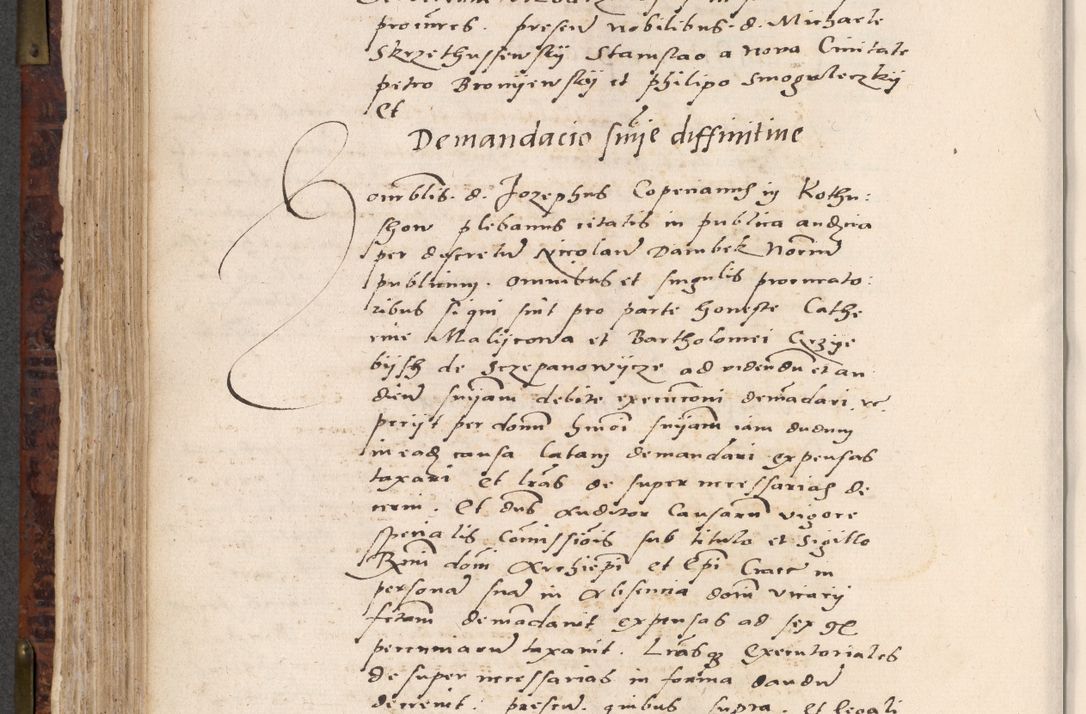 procures. presen nobilibus. d. Michaele
Skrzethussewsky Stanislao a Nova Civitate
petro Bronyewsky et philipo Smoguleczky
Et
Demandacio snie diffinitive
Honoblis. d. Jozephus Coperianus in Kothu:
show plebanus citatis in publica audcia
per discretu Nicolau Dambek Noriu
publicum. omnibus et singulis procurato:
ribus si qui sint pro parte honeste Cathe
rine Malijcowa et Bartholomei Grzye
bijsh de Sczepanowijcze ad videndu et au
dien snijam debite execucioni demadari. rc.
petijt per donu hmoi snijam iam dudum
in eadz causa latam demandari expensas
taxari et lras de super necessarias de
cerni. Et dns Auditor Causaru vigore
specialis Comissiois sub titulo et Sigillo
Rmi doni Archiepi et Epi Crace in
persona sua in Absencia doni vicarij
fctam demadavit expensas ad sex gl
pecuniaru taxavit. Lrasqz Executoriales
de super necessarias in forma dandu
decrevit. presen. quibus supra. et legali